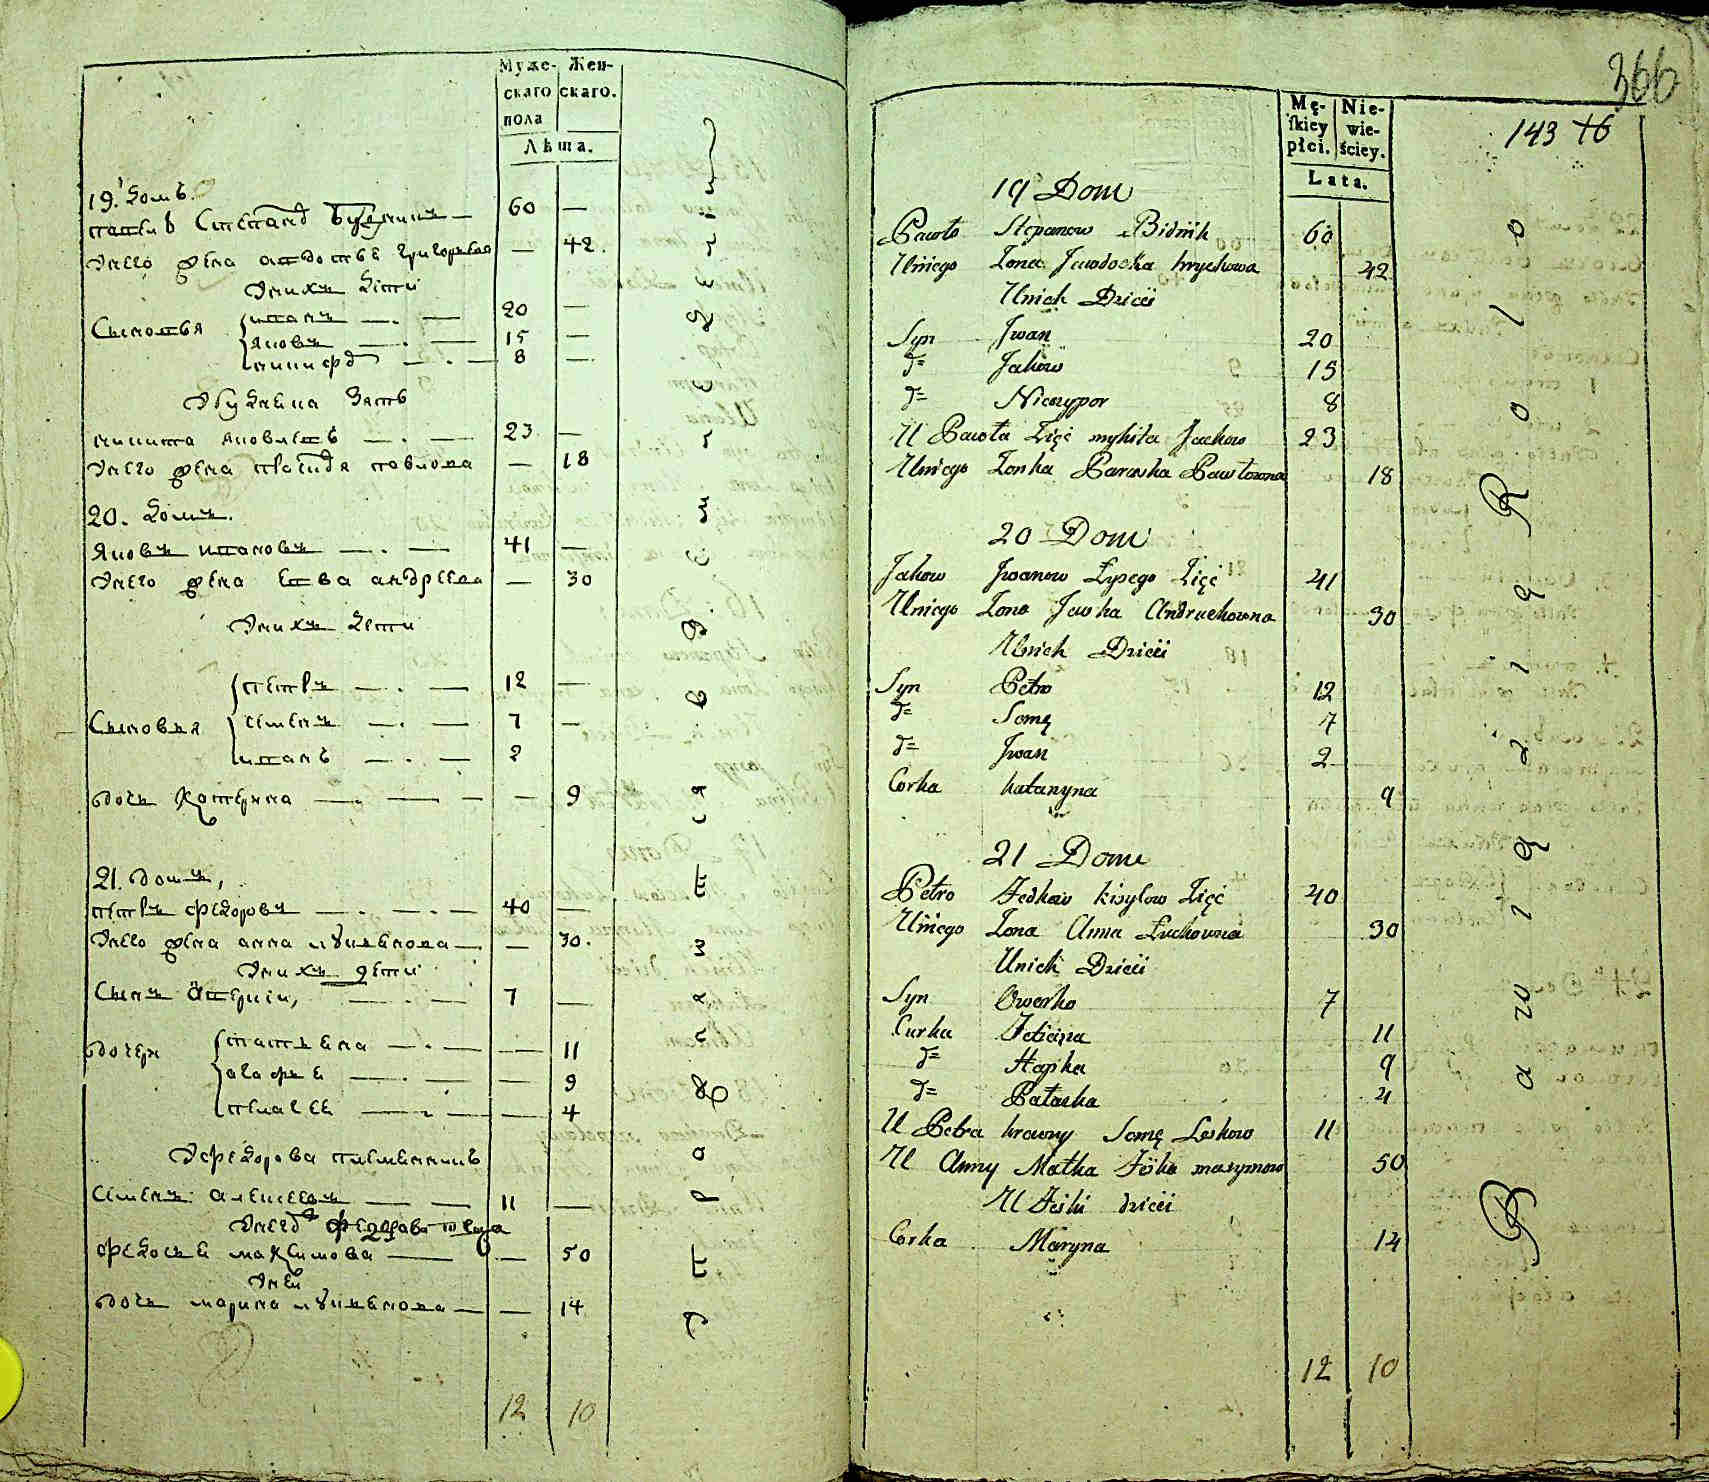 Муже- Жен-
скаго скаго.
пола
Лѣта.
19. домъ.
павелъ Степановъ 60 —
Унего жена авдотья григорьева — 42
Унихъ дети
Сыновья иванъ 20 —
яковъ 15 —
никифоръ 8 —
никита яковлевъ 23 —
Унего жена павлова — 18
20. домъ.
яковъ ивановъ 41 —
Унего жена евва андреева — 30
Унихъ дети
петръ 12 —
Сыновья семенъ 7 —
иванъ 2
дочь катерина — 9
21. домъ,
петръ федоровъ 40 —
Унего жена анна лукьянова — 30.
Унихъ дети
Сынъ аверкий, 7 —
дочери татьяна — 11
агафья — 9
пелагея — 4
Уфедорова племянникъ
Семенъ алексеевъ 11 —
федосья максимова — 50
Уней
дочь марина лукьянова — 14
12 10
366
143 +6
Mę- Nie-
skiey wie-
płci. ściey.
Lata.
19 Dom
Pawło Stepanow Bidnik 60
Uniego Żona Jawdocha hrychowa 42
Unich Dzieci
Syn Jwan 20
d= Jakow 15
d= Niczypor 8
U Pawła Zięć mykita Jackow 23
Uniego Żonka Paraska Pawłowna 18
20 Dom
Jakow Jwanow Łysego Zięć 41
Uniego Żona Jewka Andruchowna 30
Unich Dzieci
Syn Petro 12
d= Somę 7
d= Jwan 2
Corka katarzyna 9
21 Dom
Petro Fedkow kisylow Zięć 40
Uniego Żona Anna Łuckowna 30
Unich Dzieci
Syn Owerko 7
Curka Teticina 11
d= Hapka 9
d= Pałaska 4
U Petra krewny Somę Leskow 11
U Anny Matka Fśka maxymow 50
U Feśki dzieci
Corka Maryna 14
12 10